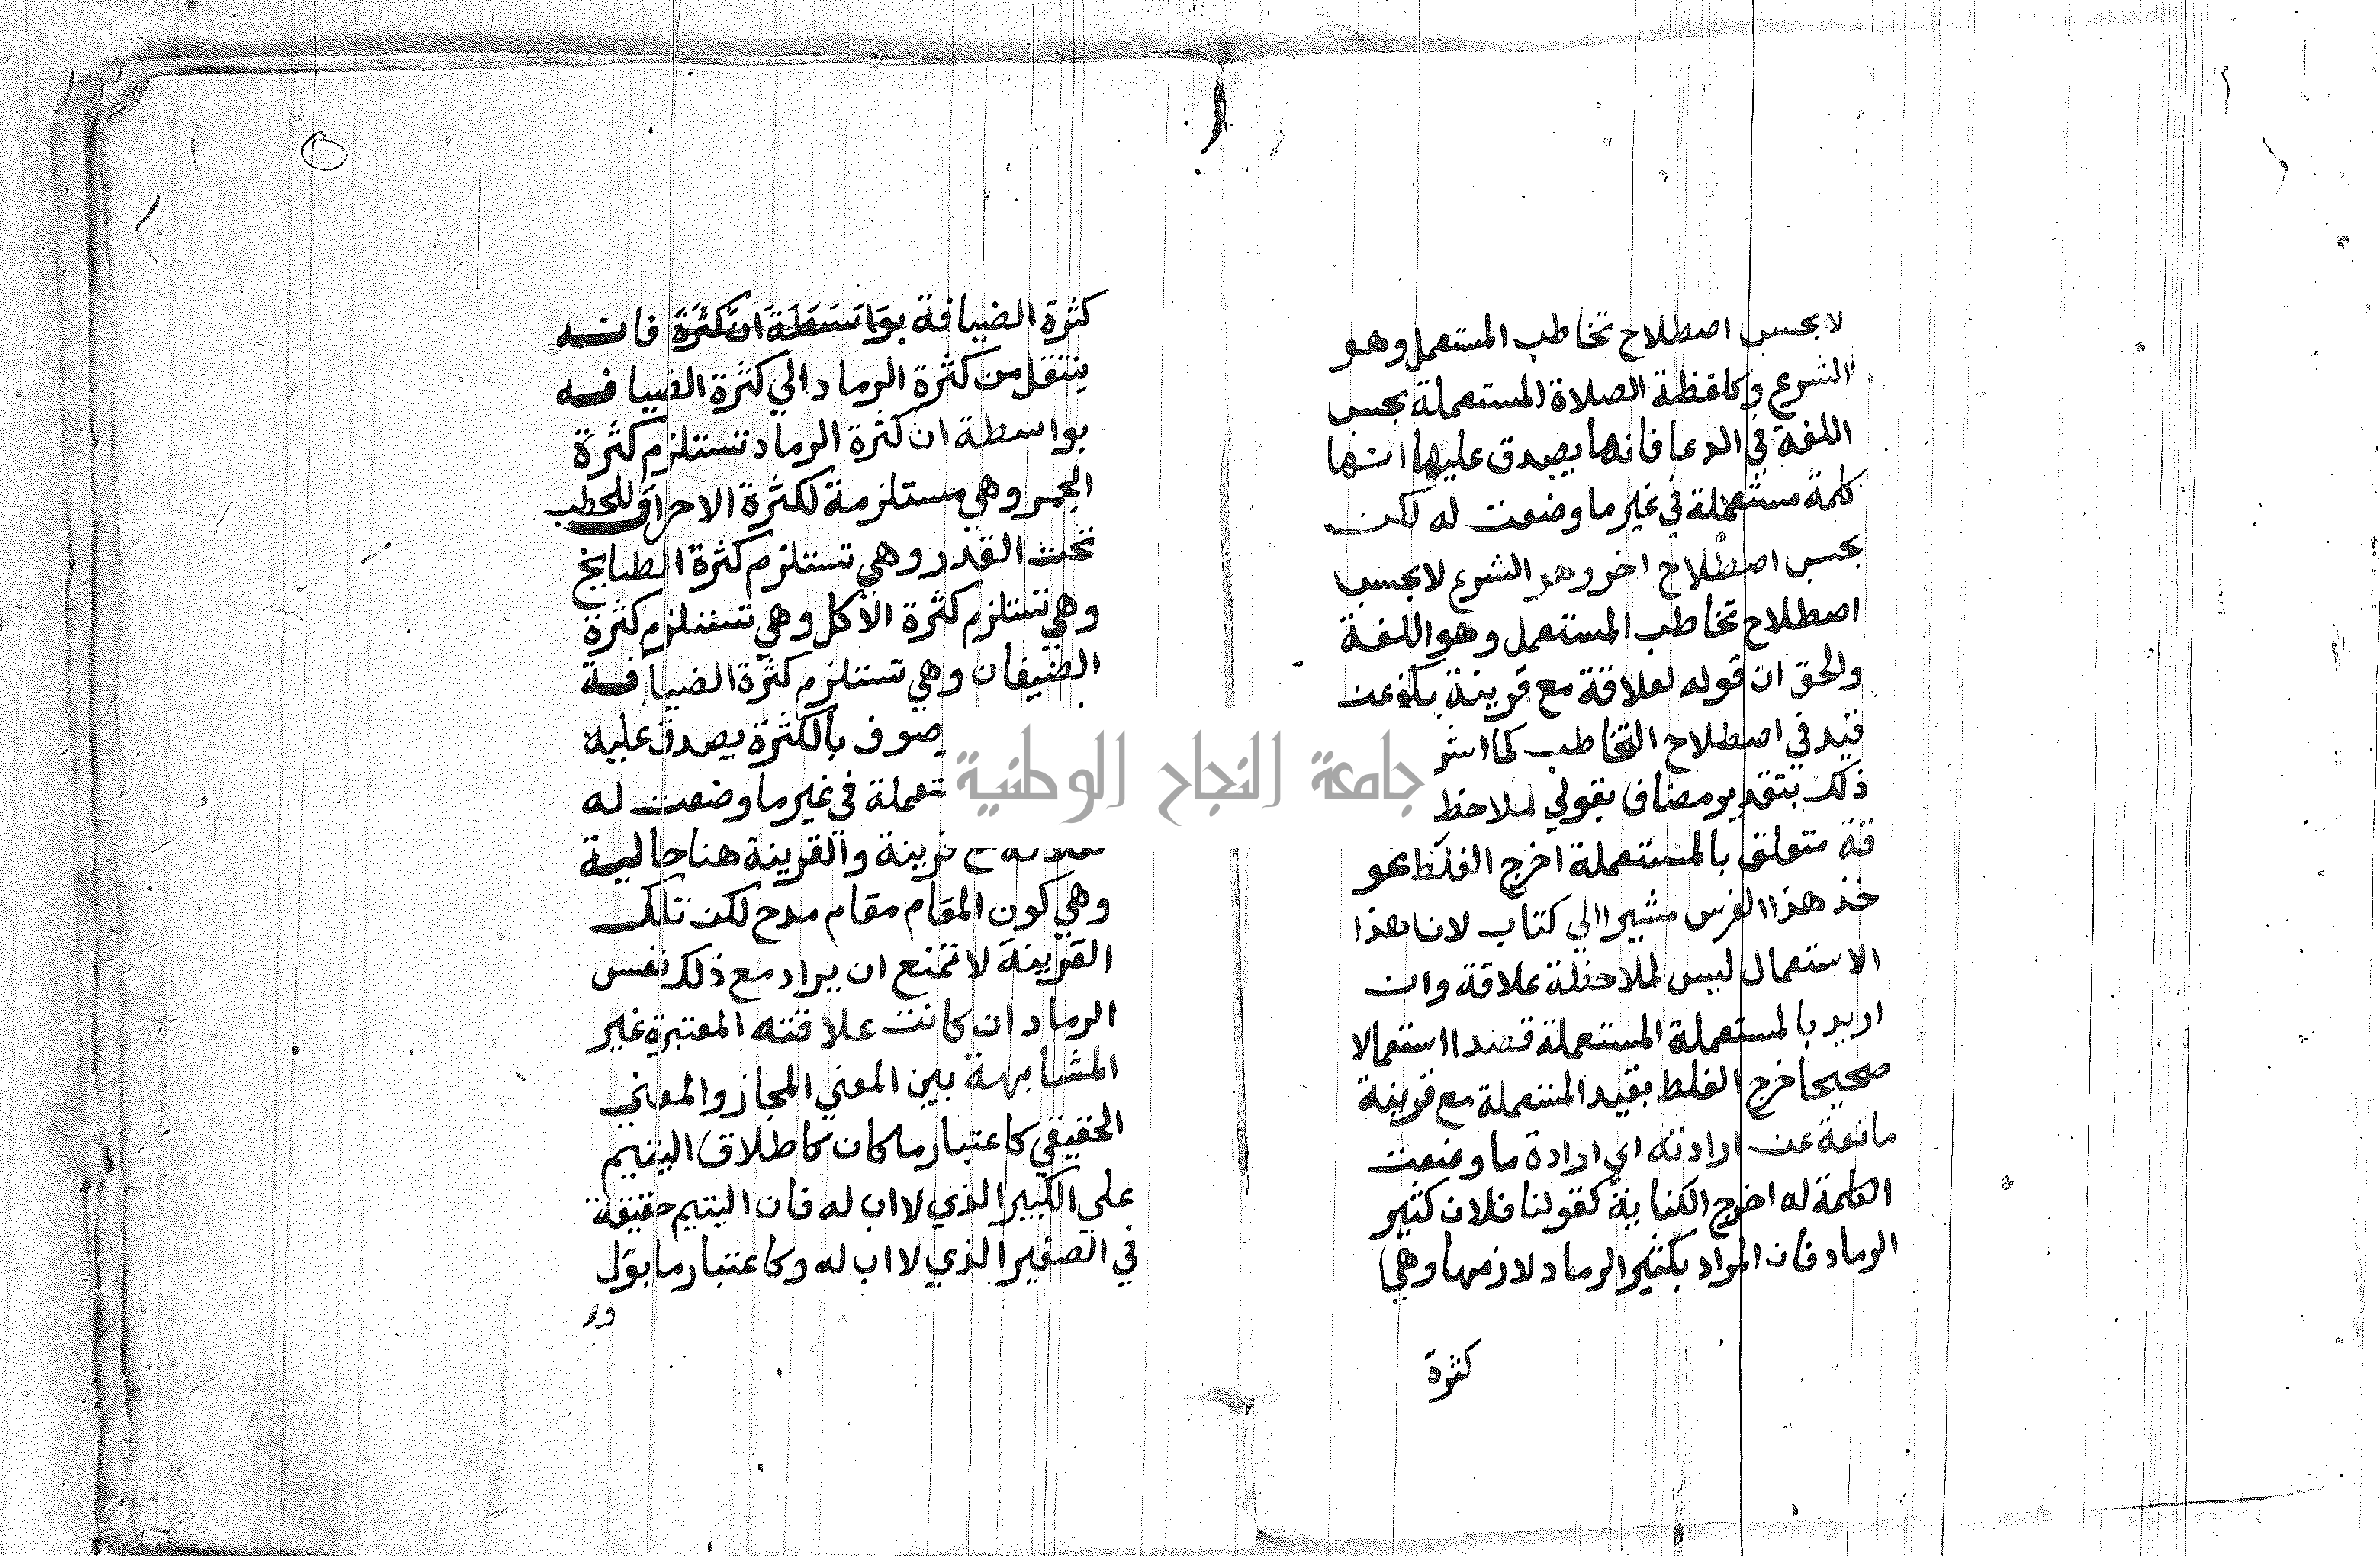 لا بحسب اصطلاح تخاطب المستعمل وهو
الشرع وكلفظة الصلاة المستعملة بحسب
اللغة في الدعا فانها يصدق عليها انها
كلمة مستعملة في غير ما وضعت له لكن
بحسب اصطلاح اخر وهو الشرع لا بحسب
اصطلاح تخاطب المستعمل وهو اللغة
والحق ان قوله لعلاقة مع قرينة يكفي عن
قيد في اصطلاح التخاطب كما اشر
ذلك بتقدير مضاف بقولي لملاحظ
قة متعلق بالمستعملة اخرج الغلط نحو
خذ هذا الفرس مشيرا الي كتاب لان هذا
الاستعمال ليس لملاحظة علاقة وان
اريد بالمستعملة المستعملة قصدا استعمالا
صحيحا خرج الغلط بقيد المستعملة مع قرينة
مانعة عن ارادته اي ارادة ما وضعت
الكلمة له اخرج الكناية كقولنا فلان كثير
الرماد فان المراد بكثير الرماد لازمها وهي
كثرة
كثرة الضيافة بواسطة ان كثرة فانه
ينتقل من كثرة الرماد الي كثرة الضيافه
بواسطة ان كثرة الرماد تستلزم كثرة
الجمر وهي مستلزمة لكثرة الاحراق للحطب
تحت القدر وهي تستلزم كثرة الطبايخ
وهي تستلزم كثرة الأكل وهي تستلزم كثرة
الضيفان وهي تستلزم كثرة الضيافة
صوف بالكثرة يصدق عليه
تعملة في غير ما وضعت له
قرينة والقرينة هنا حالية
وهي كون المقام مقام مدح لكن تلك
القرينة لا تمنع ان يراد مع ذلك نفس
الرماد ان كانت علاقته المعتبرة غير
المشابهة بين المعني المجاز والمعني
الحقيقي كاعتبار ما كان كاطلاق اليتيم
علي الكبير الذي لا اب له فان اليتيم حقيقة
في الصغير الذي لا اب له وكاعتبار ما يؤل
جامعة النجاح الوطنية